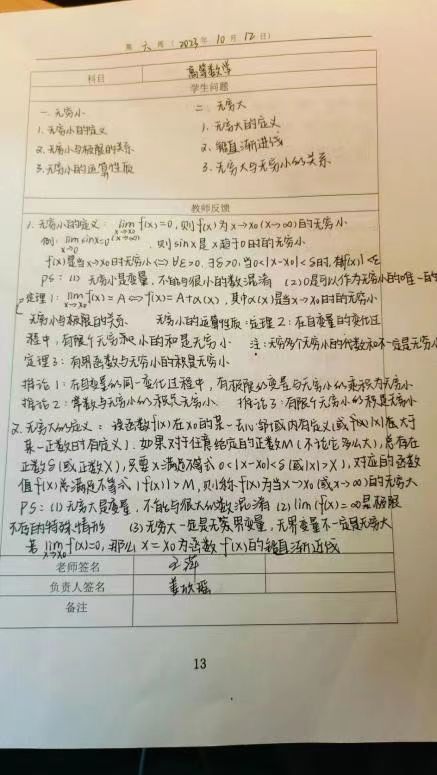 第 六 周 ( 2023 年 10 月 12 日)
科目 高等数学
学生问题
一. 无穷小 二. 无穷大
1. 无穷小的定义 1. 无穷大的定义
2. 无穷小与极限的关系 2. 铅直渐进线
3. 无穷小的运算性质 3. 无穷大与无穷小的关系
教师反馈
1. 无穷小的定义: lim x→x0 (x→∞) f(x)=0, 则f(x)为x→x0(x→∞)的无穷小
例: lim x→0 sinx=0, 则sinx是x趋于0时的无穷小
f(x)是当x→x0时无穷小⇔∀ε>0,∃δ>0,当0<|x-x0|<δ时,有|f(x)|<ε
PS: (1) 无穷小是变量,不能与很小的数混淆 (2)0是可以作为无穷小的唯一的
定理1: lim x→x0 f(x)=A⇔f(x)=A+α(x), 其中α(x)是当x→x0时的无穷小
无穷小与极限的关系 无穷小的运算性质:定理2:在自变量的变化过
程中,有限个无穷小的和是无穷小 注:无穷多个无穷小的代数和不一定是无穷小
定理3: 有界函数与无穷小的积是无穷小
推论1: 在自变量的同一变化过程中,有极限的变量与无穷小的乘积为无穷小
推论2: 常数与无穷小的积是无穷小 推论3: 有限个无穷小的积是无穷小
2. 无穷大的定义: 设函数f(x)在x0的某一去心邻域内有定义(或f(x)|x|在大于
某一正数时有定义). 如果对于任意给定的正数M(不论它多么大),总存在
正数δ(或正数X),只要x满足不等式0<|x-x0|<δ(或|x|>X),对应的函数
值f(x)总满足不等式|f(x)|>M,则称f(x)为当x→x0(或x→∞)的无穷大
PS: (1)无穷大是变量,不能与很大的数混淆 (2) lim(f(x)=∞是极限
不存在的特殊情形 (3)无穷大一定是无界变量,无界变量不一定是无穷大
若lim x→x0 f(x)=0, 那么x=x0为函数f(x)的铅直渐近线
老师签名 王萍
负责人签名 姜欣瑶
备注
13